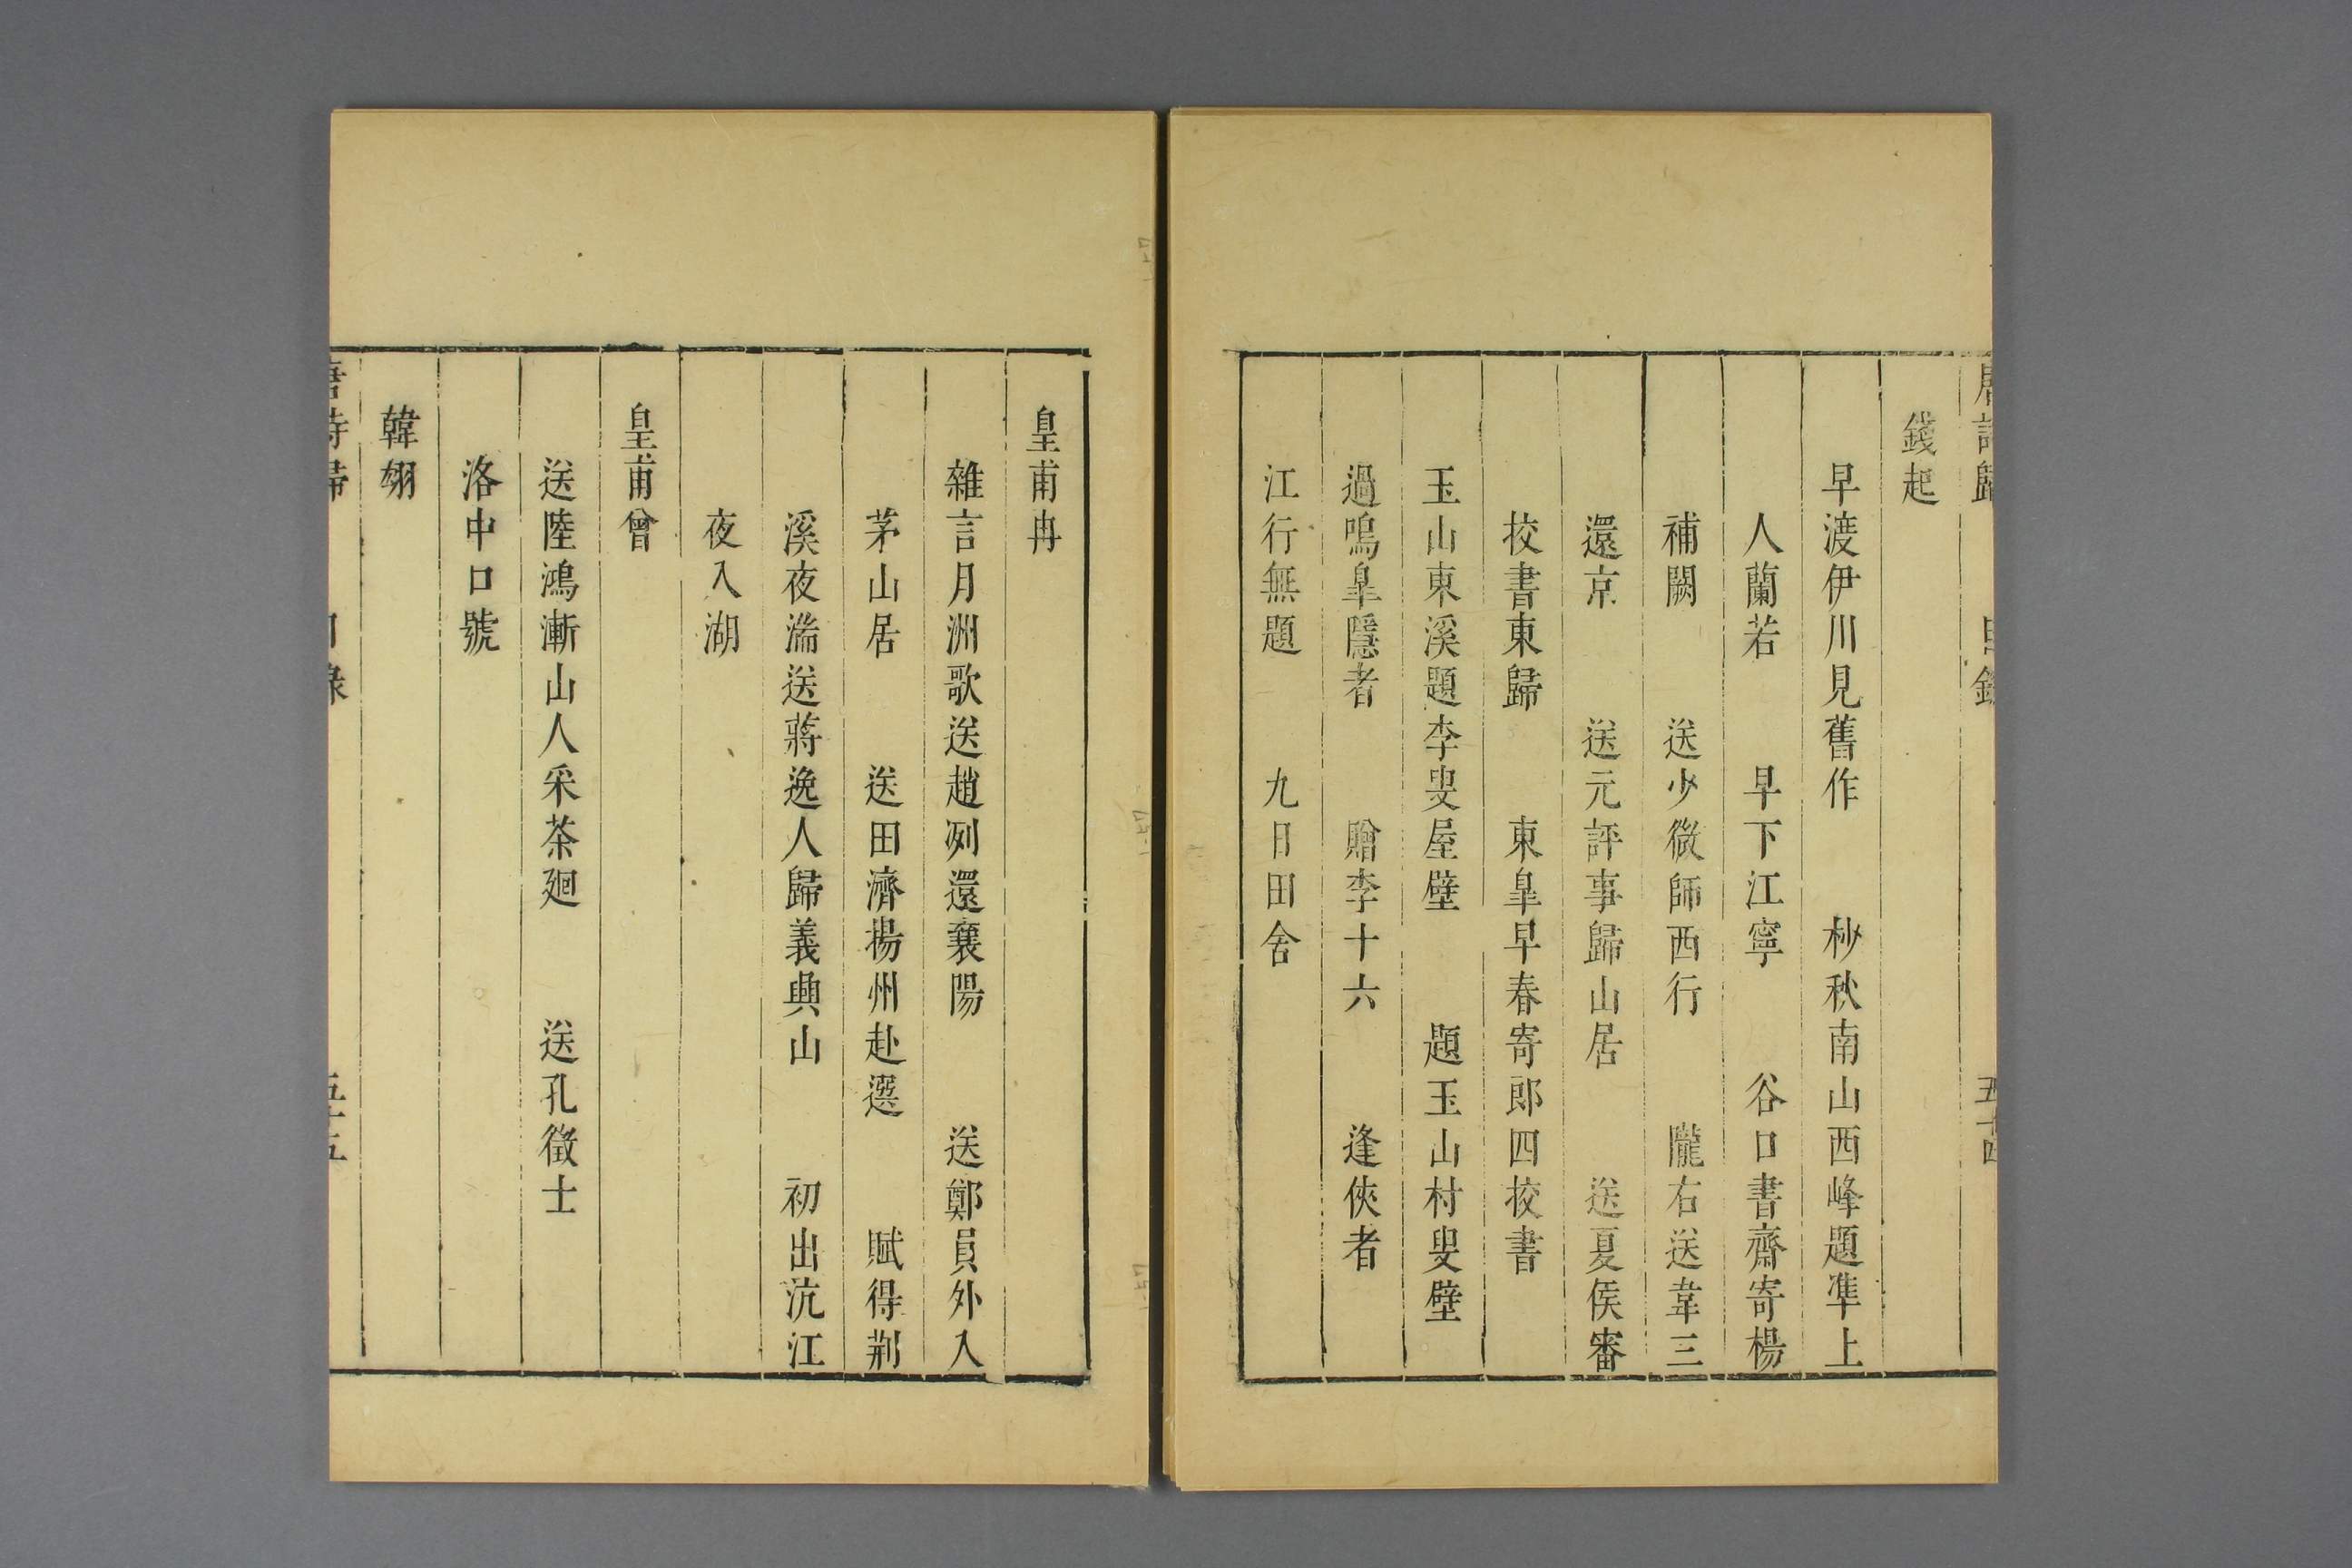 唐詩歸 目錄 五十四
錢起
早渡伊川見舊作 杪秋南山西峰題準上
人蘭若 早下江寧 谷口書齋寄楊
補闕 送少微師西行 隴右送韋三
還京 送元評事歸山居 送夏侯審
挍書東歸 東臯早春寄郎四挍書
玉山東溪題李叟屋壁 題玉山村叟壁
過鳴臯隱者 贈李十六 逢俠者
江行無題 九日田舍
皇甫冉
雜言月洲歌送趙冽還襄陽 送鄭員外入
茅山居 送田濟揚州赴選 賦得荆
溪夜湍送蔣逸人歸義興山 初出沅江
夜入湖
皇甫曾
送陸鴻漸山人采茶廻 送孔徵士
洛中口號
韓翃
唐詩歸 目錄 五十五